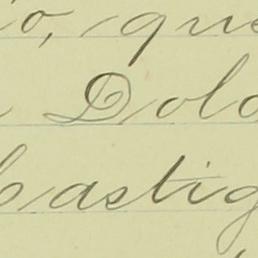 io, que
Dolo
Castig